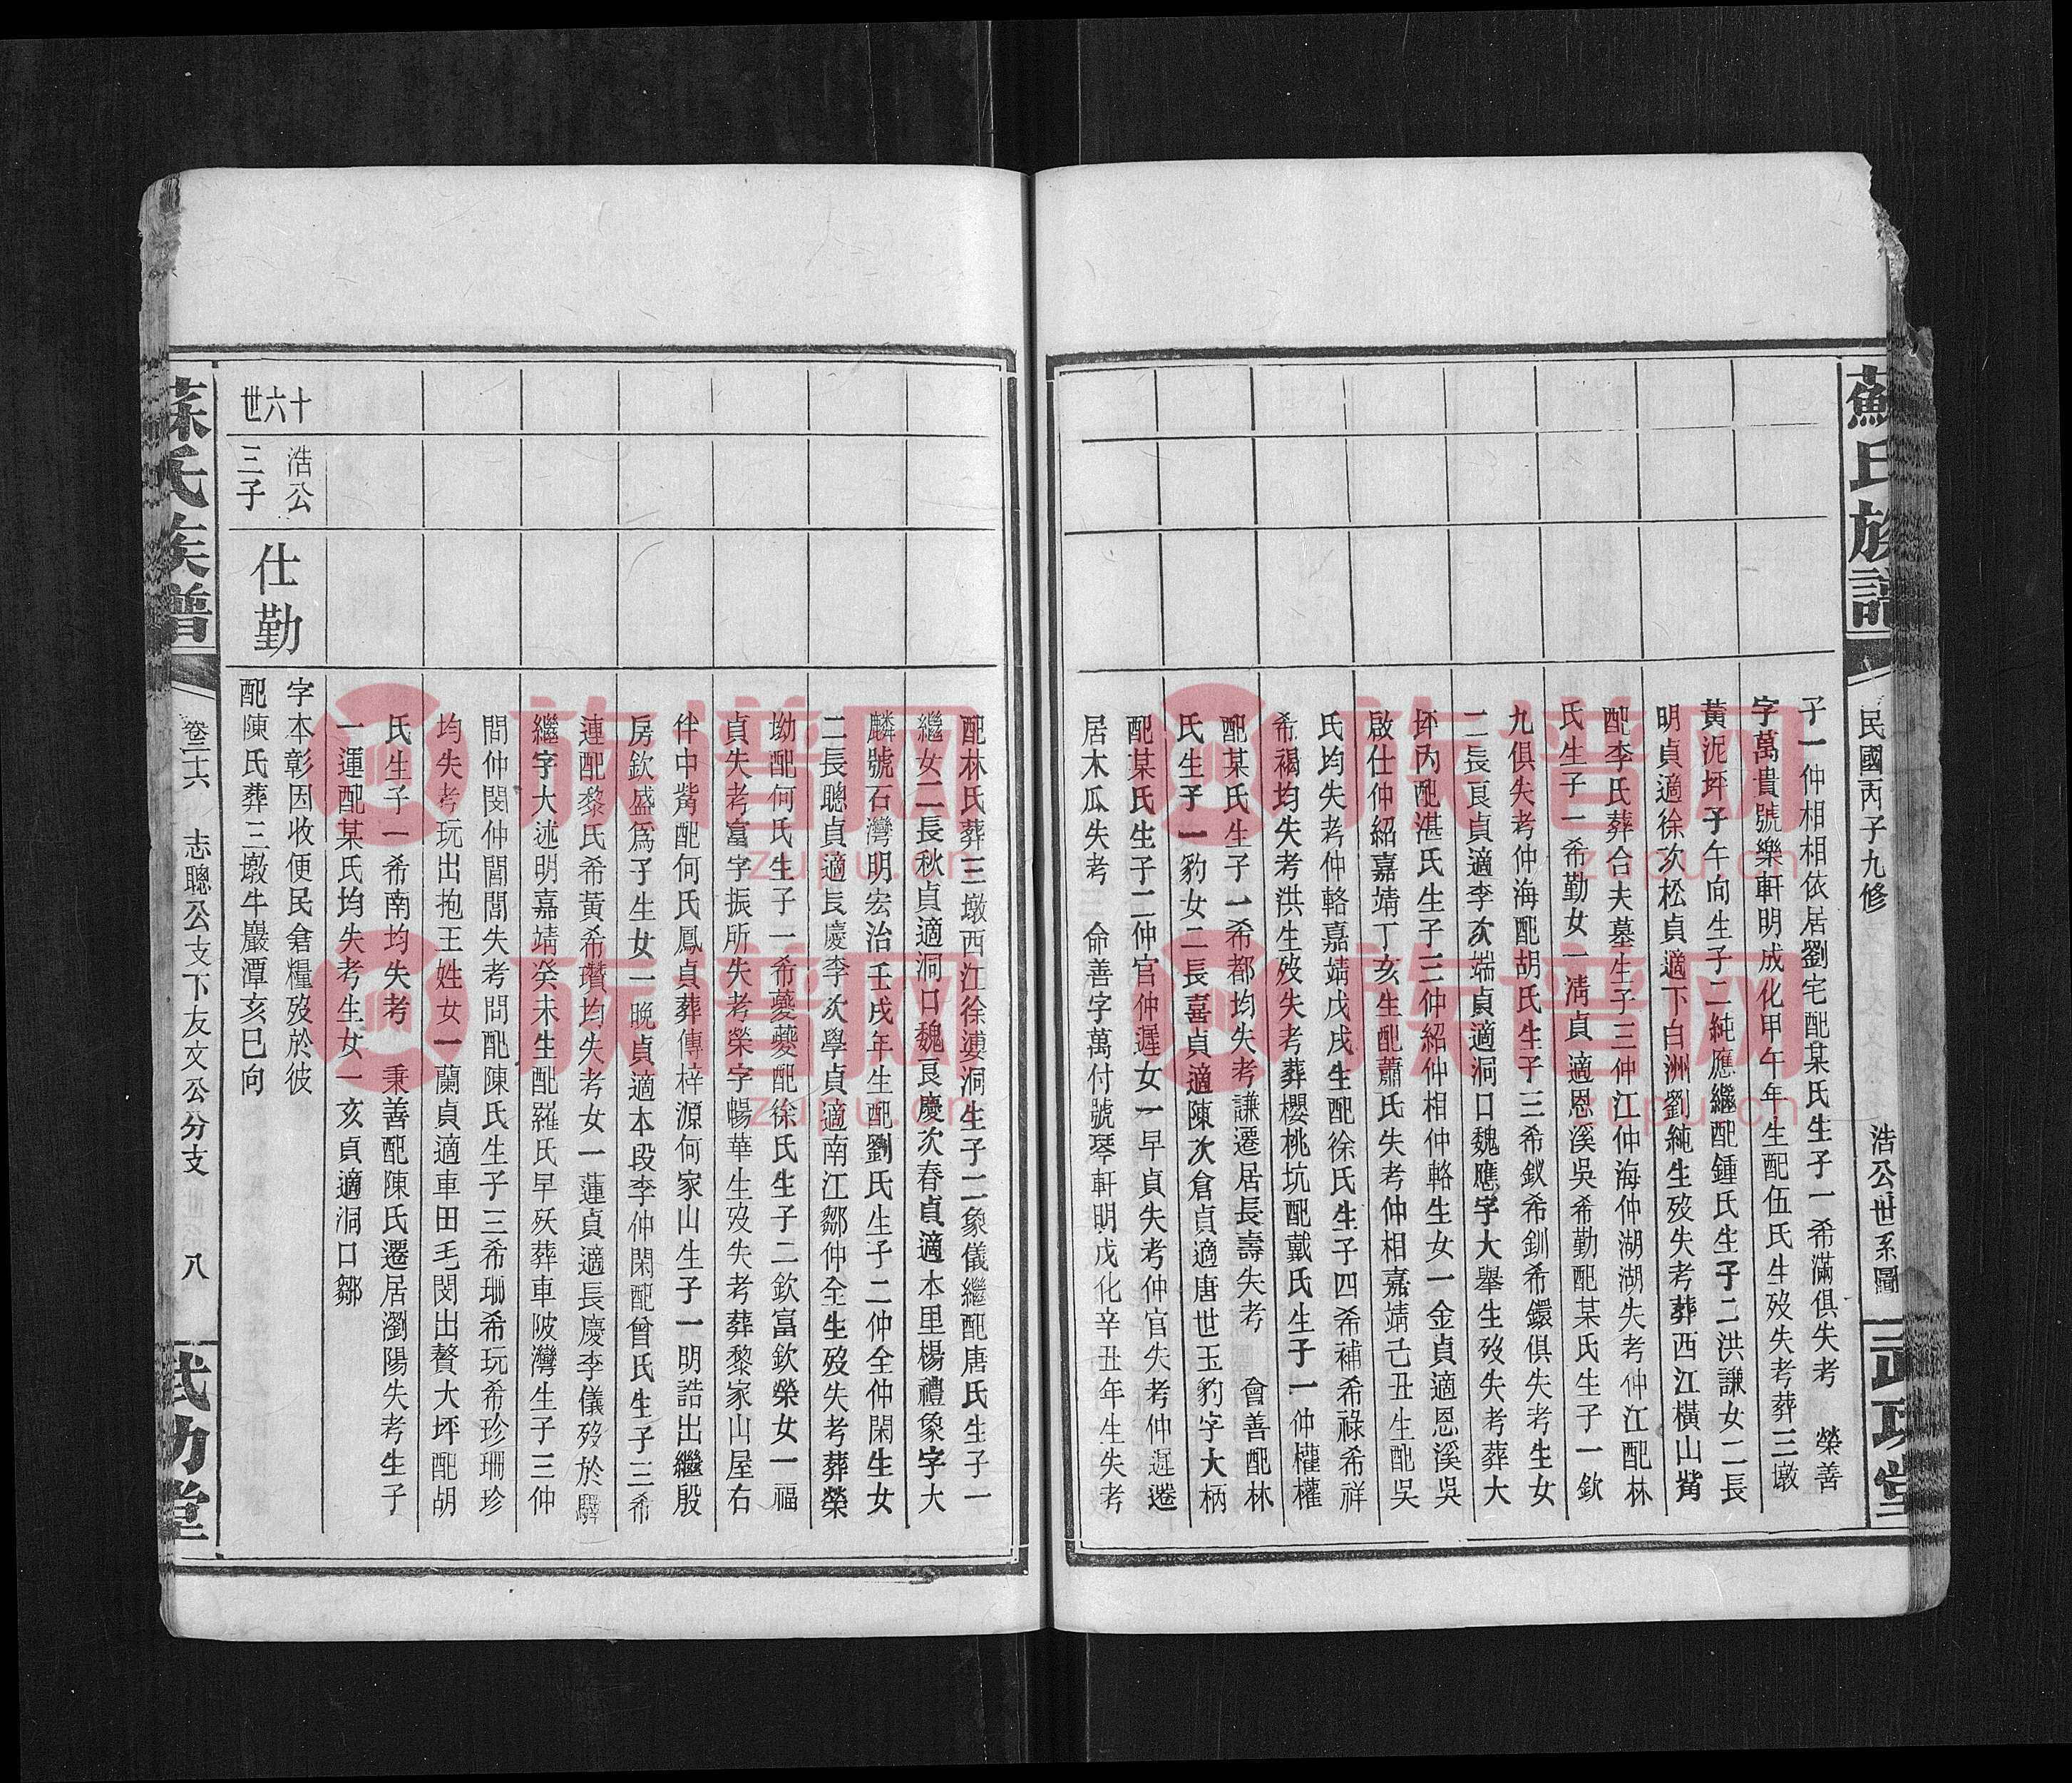 蘇氏族譜
民國丙子九修
浩公世系圖
武功堂
子一仲相相依居劉宅配某氏生子一希滿俱失考　榮善
字萬貴號樂軒明成化甲午年生配伍氏生歿失考葬三墩
黃泥坪子午向生子二純應繼配鍾氏生子二洪謙女二長
明貞適徐次松貞適下白洲劉純生歿失考葬西江橫山觜
配李氏葬合夫墓生子三仲江仲海仲湖湖失考仲江配林
氏生子一希勤女一淸貞適恩溪吳希勤配某氏生子一欽
九俱失考仲海配胡氏生子三希釵希釧希鐶俱失考生女
二長良貞適李次端貞適洞口魏應字大舉生歿失考葬大
坏內配湛氏生子三仲紹仲相仲輅生女一金貞適恩溪吳
啟仕仲紹嘉靖丁亥生配蕭氏失考仲相嘉靖己丑生配吳
氏均失考仲輅嘉靖戊戌生配徐氏生子四希補希祿希祥
希褐均失考洪生歿失考葬櫻桃坑配戴氏生子一仲權權
配某氏生子一希都均失考謙遷居長壽失考　會善配林
氏生子一豹女二長喜貞適陳次倉貞適唐世玉豹字大柄
配某氏生子二仲官仲遲女一早貞失考仲官失考仲遲遷
居木瓜失考　命善字萬付號琴軒明戊化辛丑年生失考
配林氏葬三墩西江徐婆洞生子二象儀繼配唐氏生子一
繼女二長秋貞適洞口魏良慶次春貞適本里楊禮象字大
麟號石灣明宏治壬戌年生配劉氏生子二仲全仲閑生女
二長聰貞適長慶李次學貞適南江鄒仲全生歿失考葬榮
坳配何氏生子一希夔夔配徐氏生子二欽富欽榮女一福
貞失考富字振所失考榮字暢華生歿失考葬黎家山屋右
伴中觜配何氏鳳貞葬傳梓源何家山生子一明誥出繼殷
房欽盛爲子生女一晚貞適本段李仲閑配曾氏生子三希
連配黎氏希黃希瓚均失考女一蓮貞適長慶李儀歿於驛
繼字大述明嘉靖癸未生配羅氏早殀葬車陂灣生子三仲
問仲閔仲閭閭失考問配陳氏生子三希珊希玩希珍珊珍
均失考玩出抱王姓女一蘭貞適車田毛閔出贅大坪配胡
氏生子一希南均失考　秉善配陳氏遷居瀏陽失考生子
一運配某氏均失考生女一亥貞適洞口鄒
十六世
浩公
三子
仕勤
字本彰因收便民倉糧歿於彼
配陳氏葬三墩牛巖潭亥巳向
蘇氏族譜
卷三十六　志聰公支下友文公分支　八
武功堂
族谱网
zupu.cn
族谱网
zupu.cn
族谱网
zupu.cn
族谱网
zupu.cn